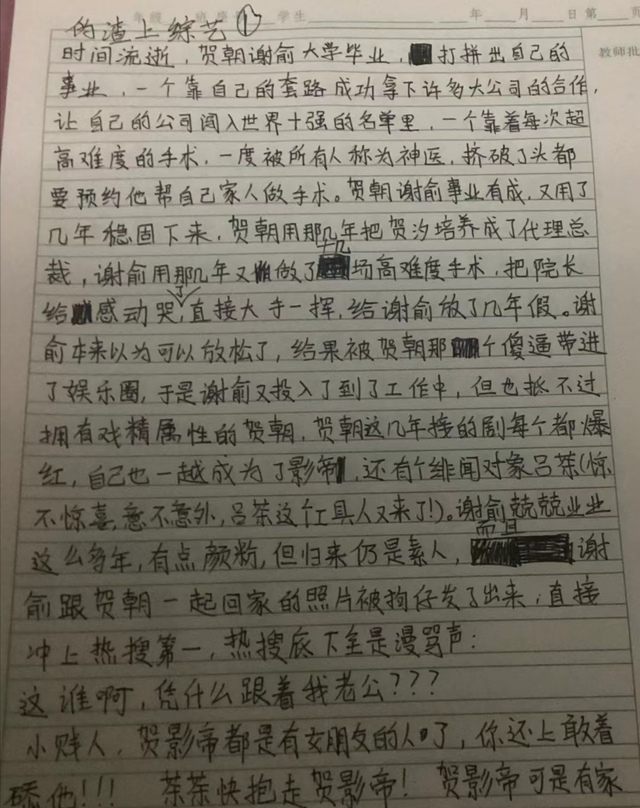 年级 班 座 学生 年 月 日 第 页
的渣上综艺①
教师批
时间流逝，贺朝谢俞大学毕业，打拼出自己的
事业，一个靠自己的套路成功拿下许多大公司的合作，
让自己的公司闯入世界十强的名单里，一个靠着每次超
高难度的手术，一度被所有人称为神医，挤破了头都
要预约他帮自己家人做手术。贺朝谢俞事业有成，又用了
几年稳固下来，贺朝用那几年把贺汐培养成了代理总
裁，谢俞用那几年又做了十几场高难度手术，把院长
给感动哭了，直接大手一挥，给谢俞放了几年假。谢
俞本来以为可以放松了，结果被贺朝那个傻逼带进
了娱乐圈，于是谢俞又投入了到了工作中，但也抵不过
拥有戏精属性的贺朝，贺朝这几年接的剧每个都爆
红，自己也一越成为了影帝，还有个绯闻对象吕茶(惊
不惊喜，意不意外，吕茶这个工具人又来了!)。谢俞兢兢业业
这么多年，有点颜粉，但归来仍是素人，而且谢
俞跟贺朝一起回家的照片被狗仔发了出来，直接
冲上热搜第一，热搜底下全是谩骂声：
这谁啊，凭什么跟着我老公???
小贱人，贺影帝都是有女朋友的人了，你还上敢着
舔他!!! 茶茶快抱走贺影帝! 贺影帝可是有家